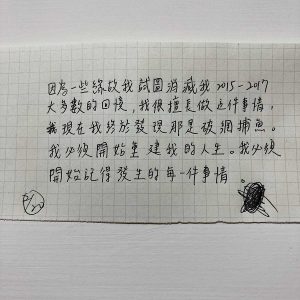 因為一些緣故我試圖消滅我 2015-2017
大多數的回憶,我很擅長做这件事情,
我現在我終於發現那是破網捕魚。
我必須開始重建我的人生。我必須
開始記得發生的每一件事情。